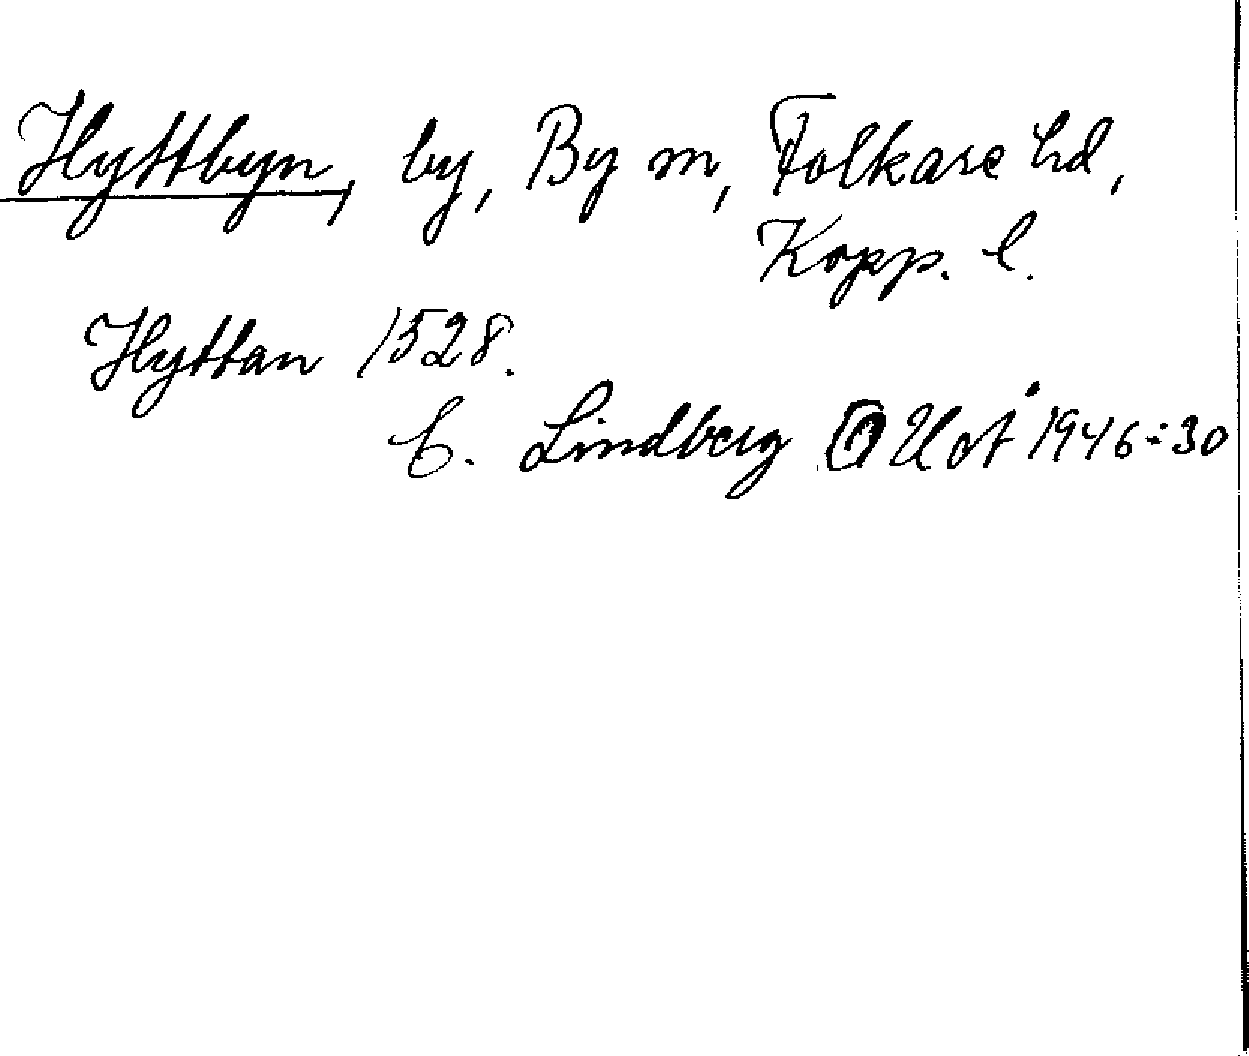 Hyttbyn, by, By sn, Folkare hd,
Kopp. l.
Hyttan 1528.
C. Lindberg OUÅ 1946:30